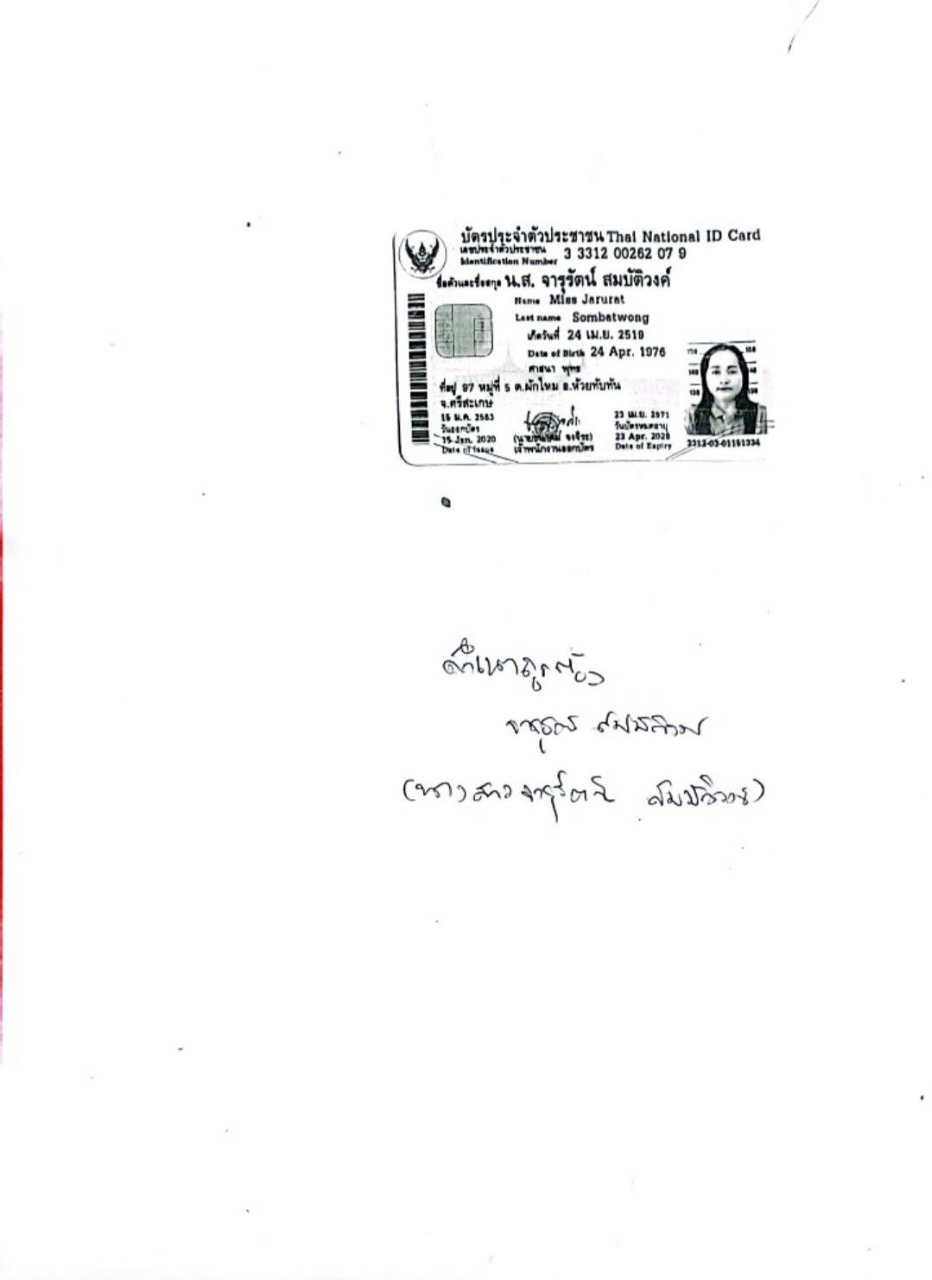 บัตรประจำตัวประชาชน Thai National ID Card
เลขประจำตัวประชาชน
Identification Number 3 3312 00262 07 9
ชื่อตัวและชื่อสกุล น.ส. จารุรัตน์ สมบัติวงค์
Name Miss Jarurat
Last name Sombatwong
เกิดวันที่ 24 เม.ย. 2519
Date of Birth 24 Apr. 1976
ศาสนา พุทธ
ที่อยู่ 97 หมู่ที่ 5 ต.ผักไหม อ.ห้วยทับทัน
จ.ศรีสะเกษ
15 ม.ค. 2563
วันออกบัตร
15 Jan. 2020
Date of Issue
เจ้าพนักงานออกบัตร
23 เม.ย. 2571
วันบัตรหมดอายุ
23 Apr. 2028
Date of Expiry
3312-03-01151334
สำเนาถูกต้อง
จารุรัตน์ สมบัติวงค์
(นางสาวจารุรัตน์ สมบัติวงค์)